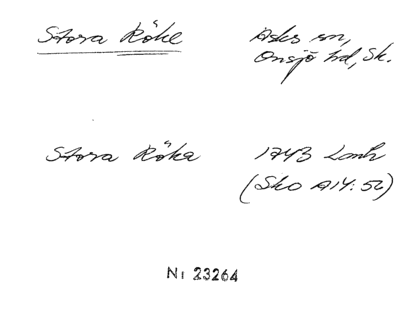 Stora Röke
Asks sn,
Onsjö hd, Sk.
Stora Röka
1743 Lomh
(Sko A14: 52)
Nr 23264